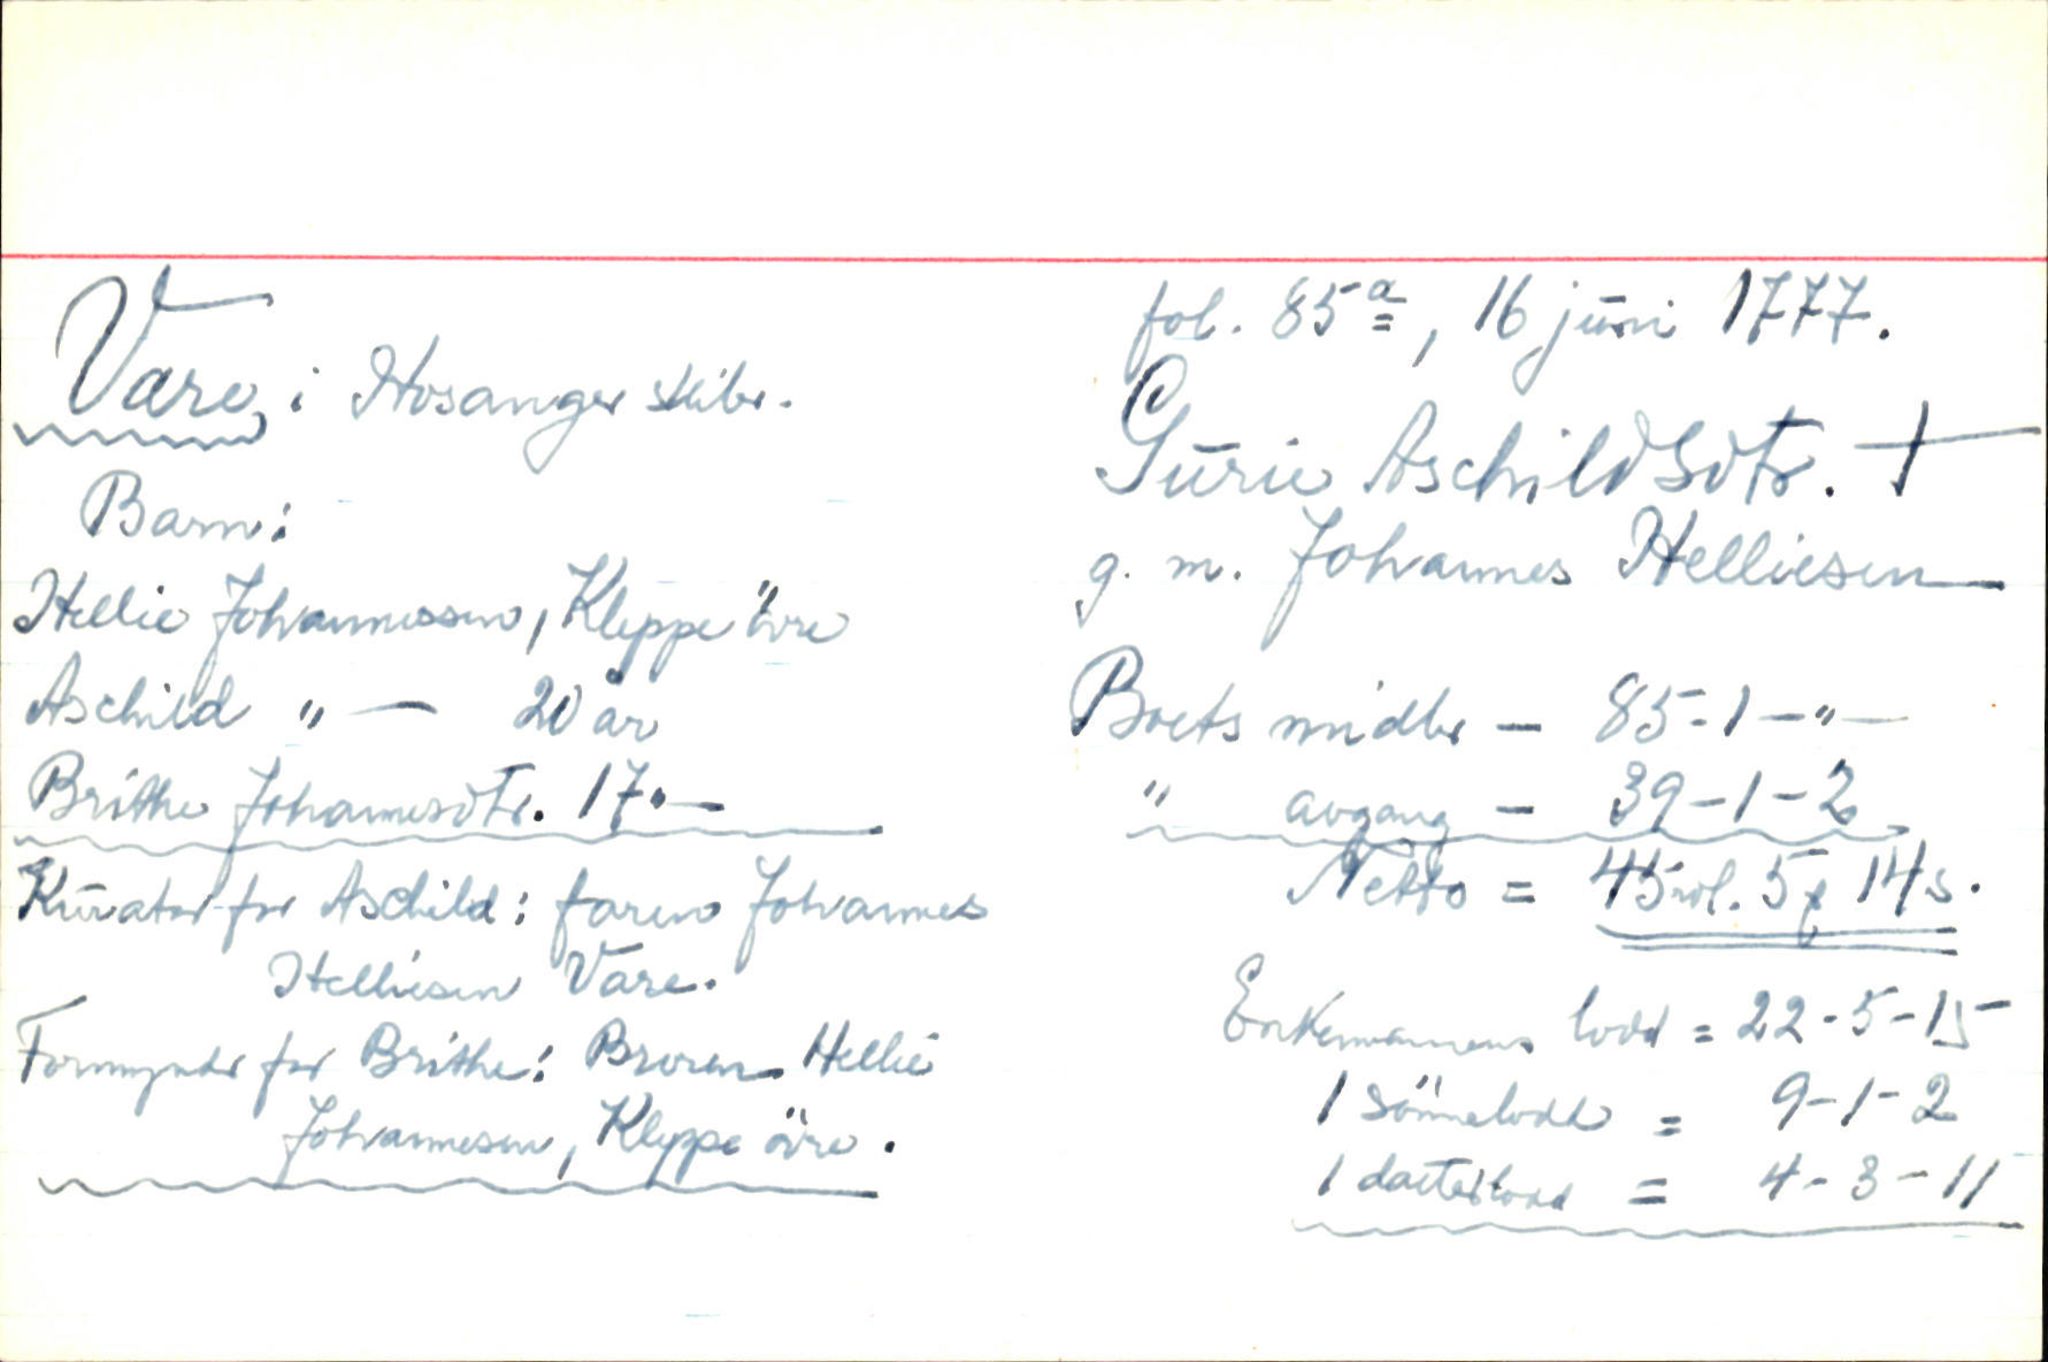 Vare, i Hosanger skibr.
Barn:
Hellie Johannessen, Kleppe övre
Aschild " — 20 år
Brithe Johannesdtr. 17 " —
Kurator for Aschild: faren Johannes
Helliesen Vare.
Formynder for Brithe: Broren Hellie
Johannesen, Kleppe övre.
fol. 85a, 16 juni 1777.
Gurie Aschildsdtr. †
g. m. Johannes Helliesen
Boets midler — 85-1-"-
" avgang — 39-1-2
Netto = 45 rd. 5 ƒ 14 s.
Enkemannens lodd = 22-5-15
1 sönnelodd = 9-1-2
1 datterlodd = 4-3-11